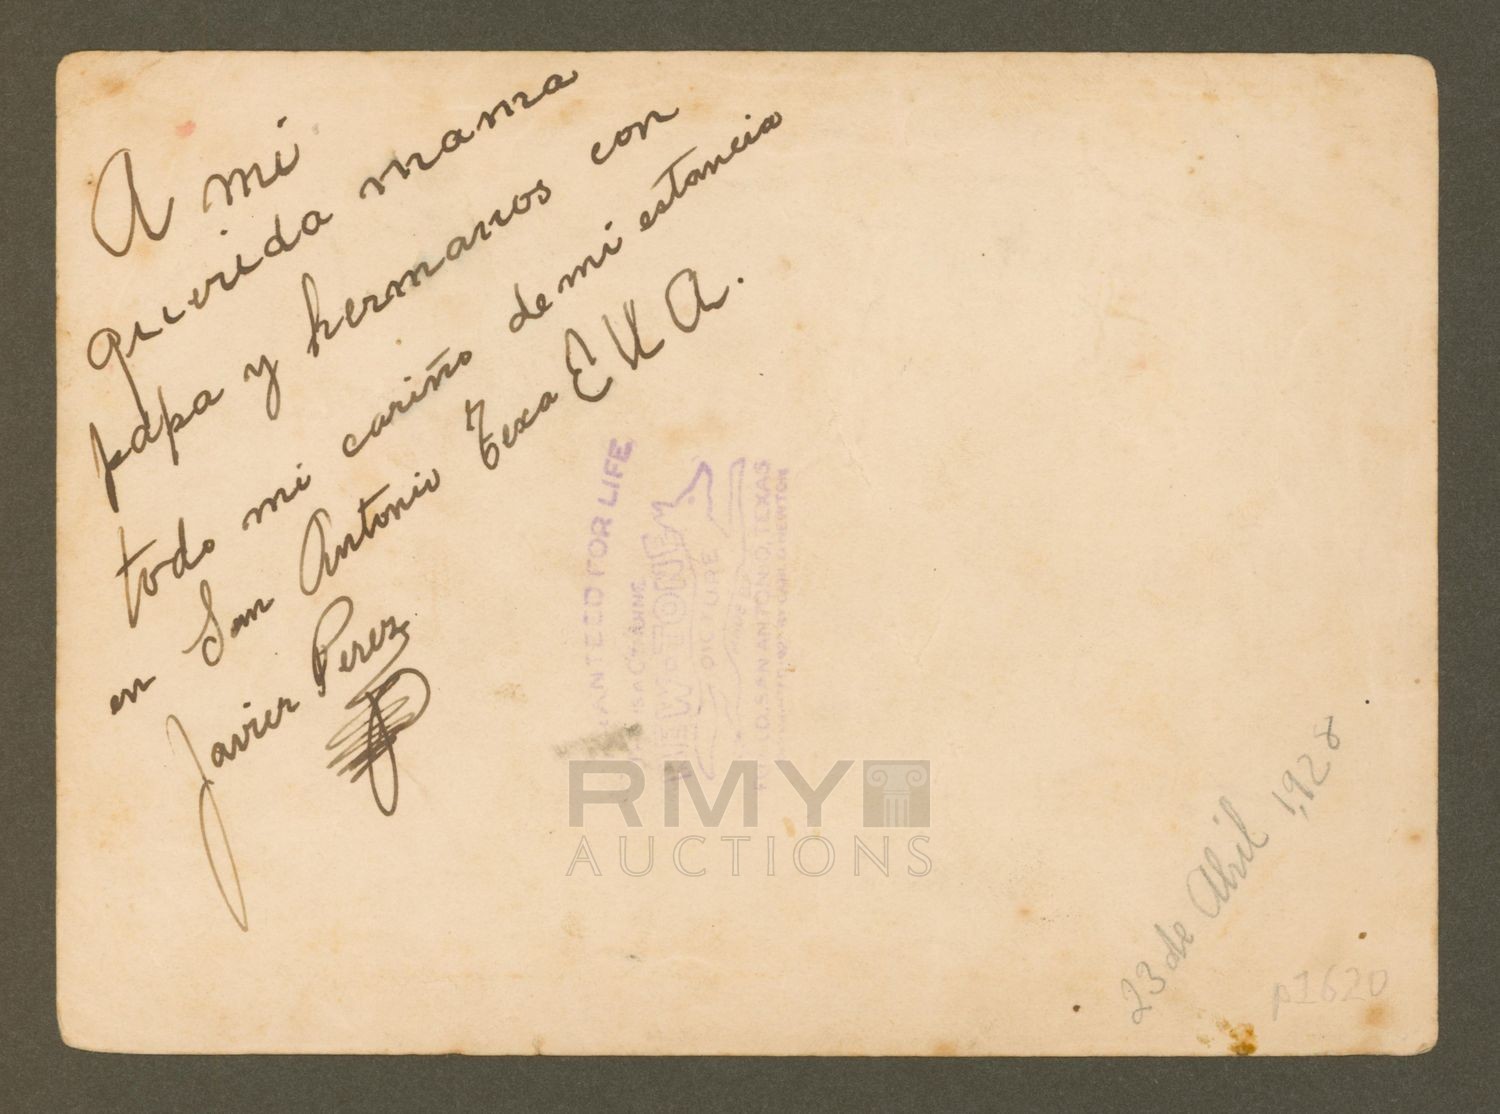 A mi
querida mama
papa y hermanos con
todo mi cariño de mi estancia
en San Antonio Texa E U A.
Javier Perez
FOR LIFE
NEWTONE
PICTURE
SAN ANTONIO, TEXAS
RMY
AUCTIONS
23 de Abril 1,928
p1620